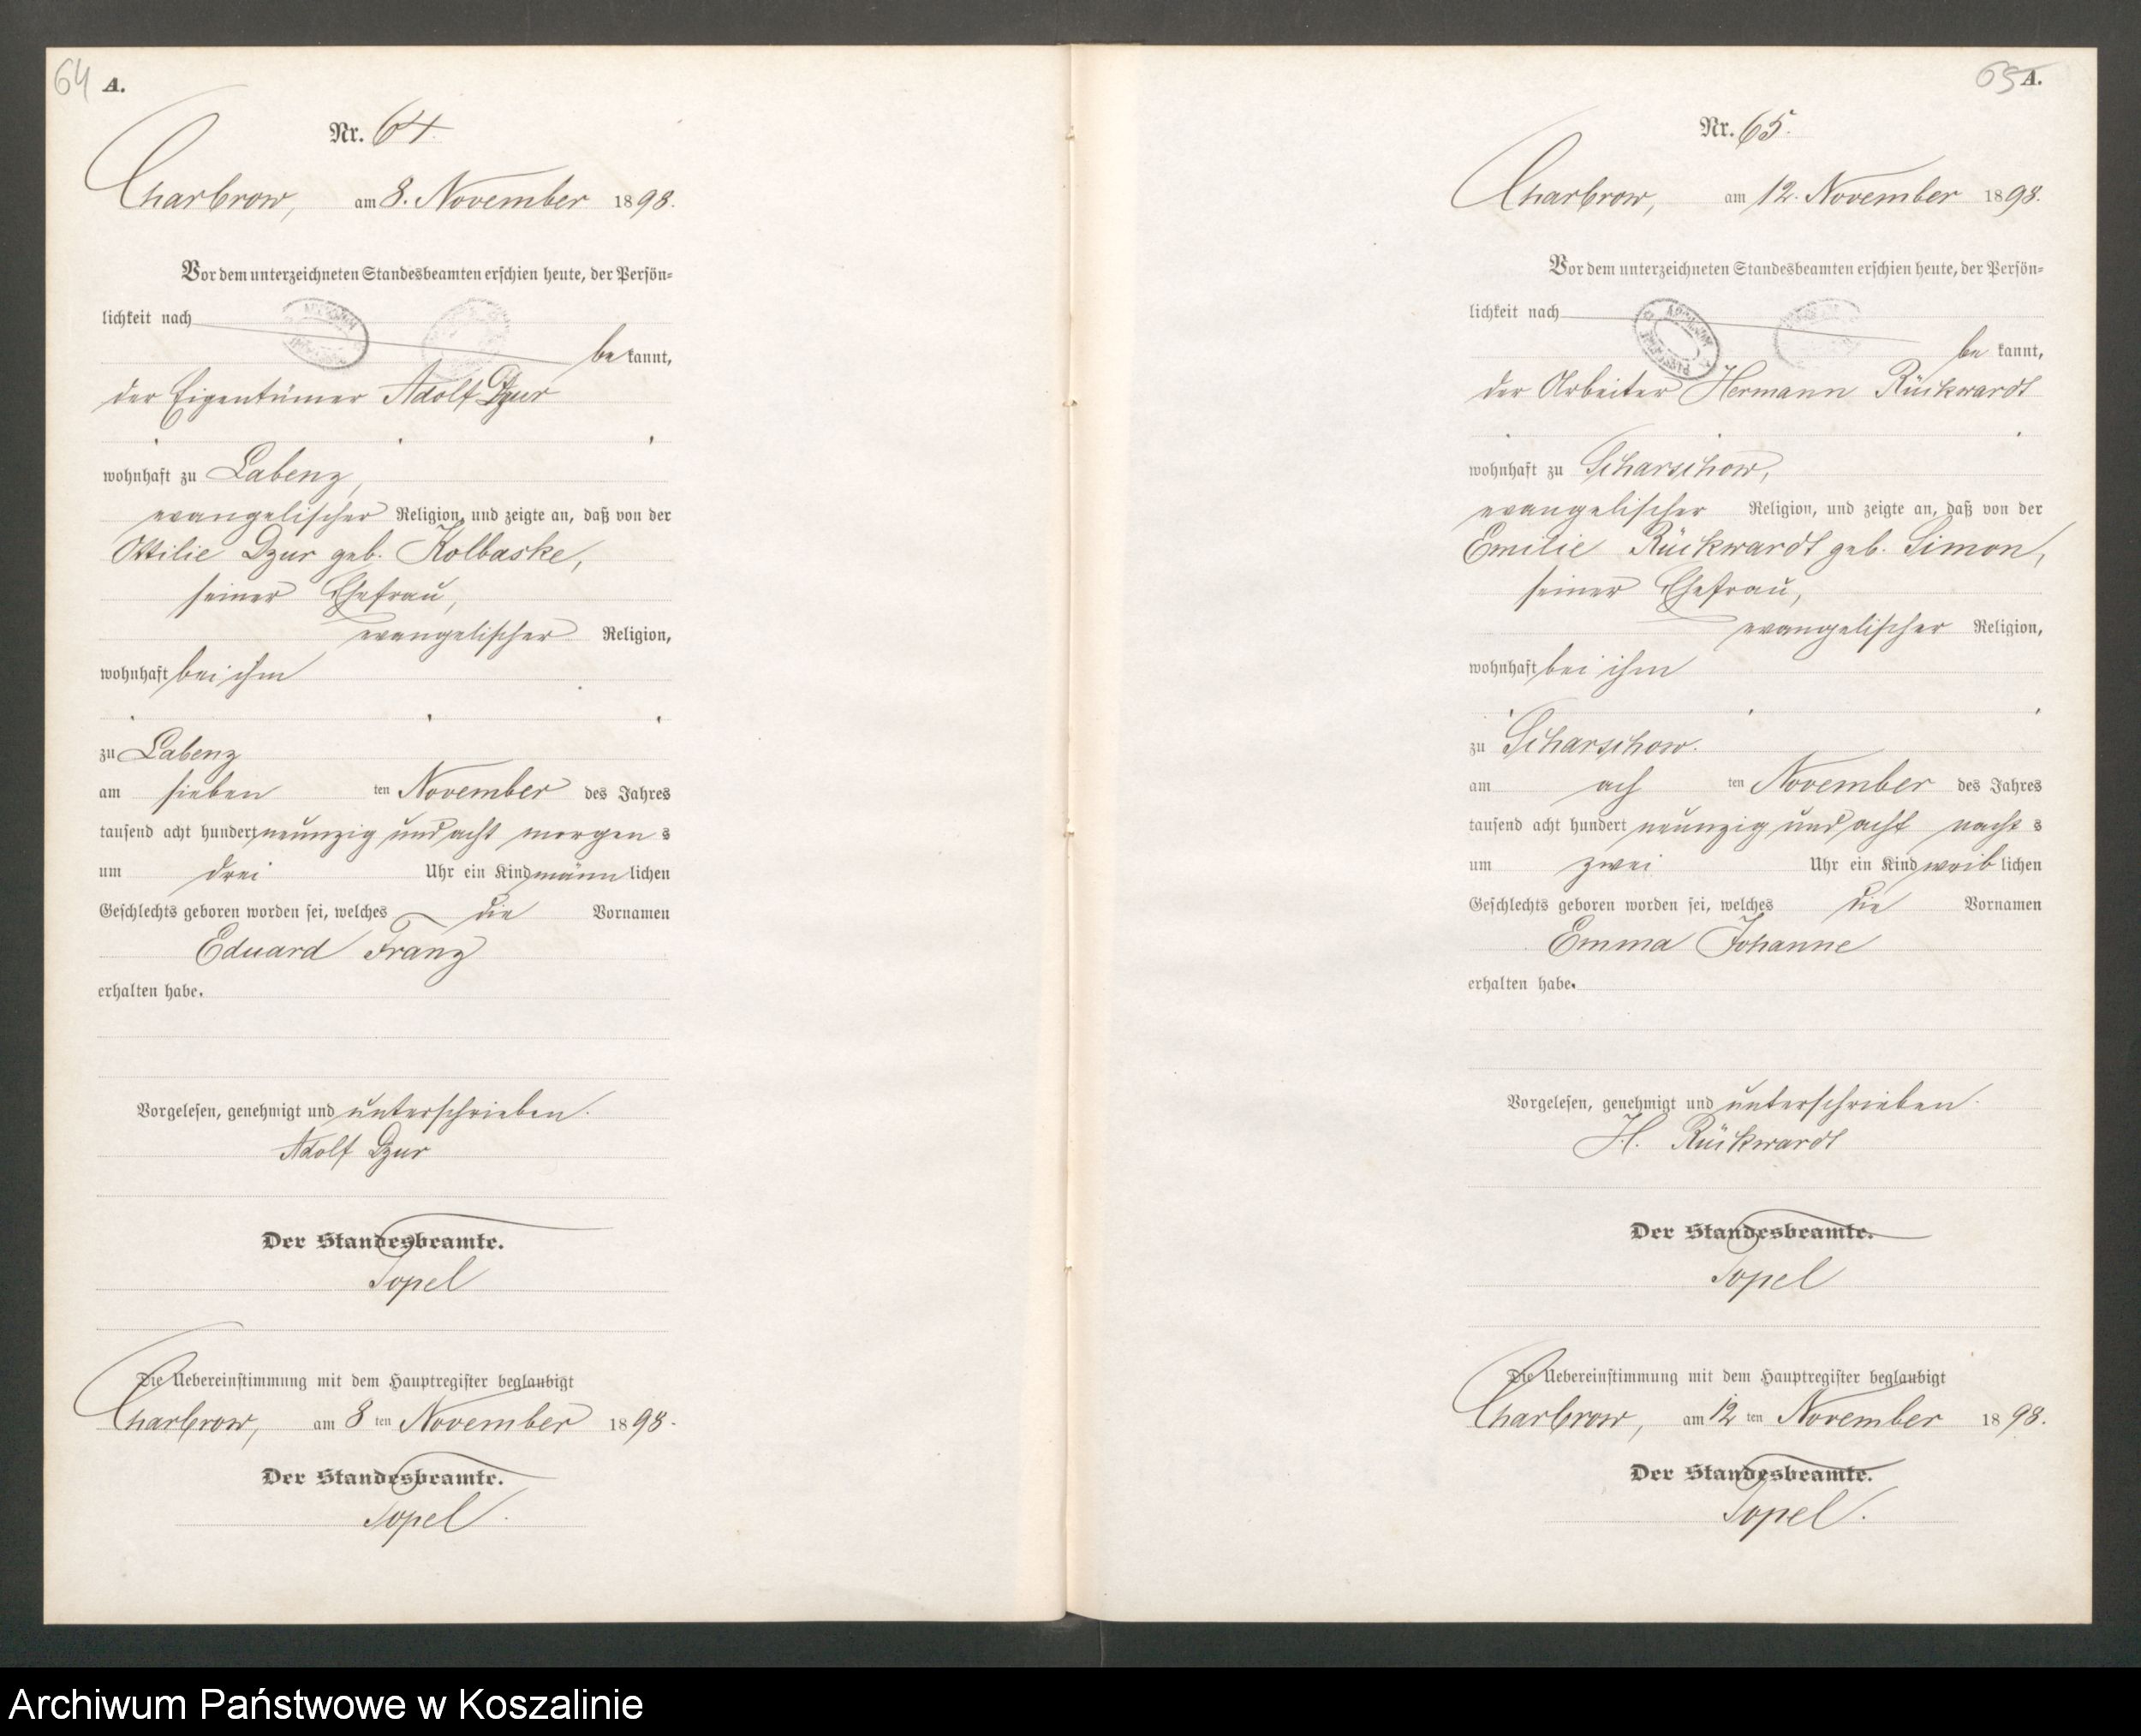 64 A.
Nr. 64.
Charbrow, am 8. November 1898.
Vor dem unterzeichneten Standesbeamten erschien heute, der Persön-
lichkeit nach
be kannt,
der Eigentümer Adolf Dzur
wohnhaft zu Labenz,
evangelischer Religion, und zeigte an, daß von der
Ottilie Dzur geb. Kolbaske,
seiner Ehefrau,
evangelischer Religion,
wohnhaft bei ihm
zu Labenz
am sieben ten November des Jahres
tausend acht hundert neunzig und acht morgen s
um drei Uhr ein Kind männ lichen
Geschlechts geboren worden sei, welches die Vornamen
Eduard Franz
erhalten habe.
Vorgelesen, genehmigt und unterschrieben.
Adolf Dzur
Der Standesbeamte.
Topel
Die Uebereinstimmung mit dem Hauptregister beglaubigt
Charbrow, am 8 ten November 1898.
Der Standesbeamte.
Topel.
65 A.
Nr. 65.
Charbrow, am 12. November 1898.
Vor dem unterzeichneten Standesbeamten erschien heute, der Persön-
lichkeit nach
be kannt,
der Arbeiter Hermann Rückwardt
wohnhaft zu Scharschow,
evangelischer Religion, und zeigte an, daß von der
Emilie Rückwardt geb. Simon,
seiner Ehefrau,
evangelischer Religion,
wohnhaft bei ihm
zu Scharschow.
am ach ten November des Jahres
tausend acht hundert neunzig und acht nacht s
um zwei Uhr ein Kind weib lichen
Geschlechts geboren worden sei, welches die Vornamen
Emma Johanne
erhalten habe.
Vorgelesen, genehmigt und unterschrieben.
H. Rückwardt
Der Standesbeamte.
Topel
Die Uebereinstimmung mit dem Hauptregister beglaubigt
Charbrow, am 12 ten November 1898.
Der Standesbeamte.
Topel.
Archiwum Państwowe w Koszalinie